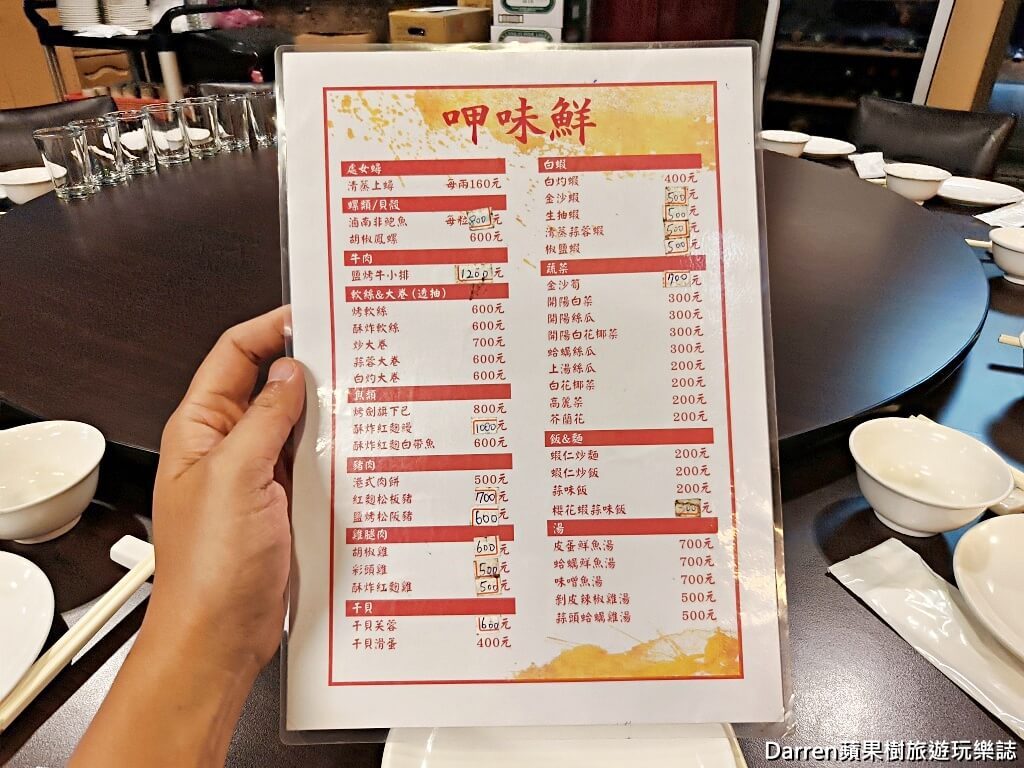 呷味鮮
處女蟳
清蒸上蟳 每兩160元
螺類/貝殼
滷南非鮑魚 每粒800元
胡椒鳳螺 600元
牛肉
鹽烤牛小排 1200元
軟絲&大卷(透抽)
烤軟絲 600元
酥炸軟絲 600元
炒大卷 700元
蒜蓉大卷 600元
白灼大卷 600元
魚類
烤劍旗下巴 800元
酥炸紅麴鰻 1000元
酥炸紅麴白帶魚 600元
豬肉
港式肉餅 500元
紅麴松板豬 700元
鹽烤松阪豬 600元
雞腿肉
胡椒雞 600元
彩頭雞 500元
酥炸紅麴雞 500元
干貝
干貝芙蓉 600元
干貝滑蛋 400元
白蝦
白灼蝦 400元
金沙蝦 500元
生抽蝦 500元
清蒸蒜蓉蝦 500元
椒鹽蝦 500元
蔬菜
金沙筍 700元
開陽白菜 300元
開陽絲瓜 300元
開陽白花椰菜 300元
蛤蠣絲瓜 300元
上湯絲瓜 200元
白花椰菜 200元
高麗菜 200元
芥蘭花 200元
飯&麵
蝦仁炒麵 200元
蝦仁炒飯 200元
蒜味飯 200元
櫻花蝦蒜味飯 元
湯
皮蛋鮮魚湯 700元
蛤蠣鮮魚湯 700元
味噌魚湯 700元
剝皮辣椒雞湯 500元
蒜頭蛤蠣雞湯 500元
Darren蘋果樹旅遊玩樂誌